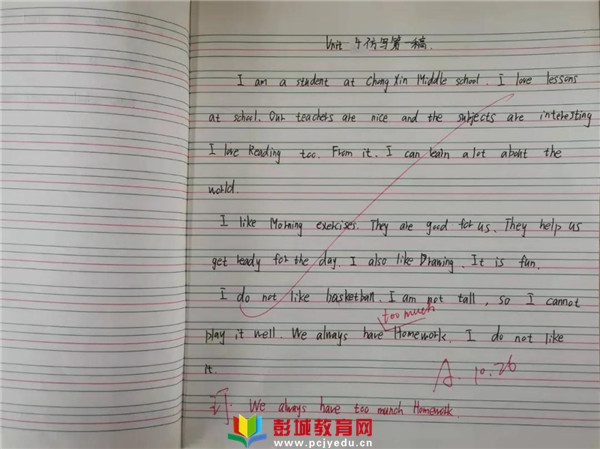 Unit 4 仿写第一稿.
I am a student at Chong Xin Middle school. I love lessons
at school. Our teachers are nice and the subjects are interesting
I love Reading too. From it. I can learn a lot about the
world.
I like Morning exercises. They are good for us. They help us
get ready for the day. I also like Drawing. It is fun.
I do not like basketball. I am not tall, so I cannot
too much
play it well. We always have Homework. I do not like
it.
A. 10.26
订. We always have too munch Homework.
彭城教育网
www.pcjyedu.cn